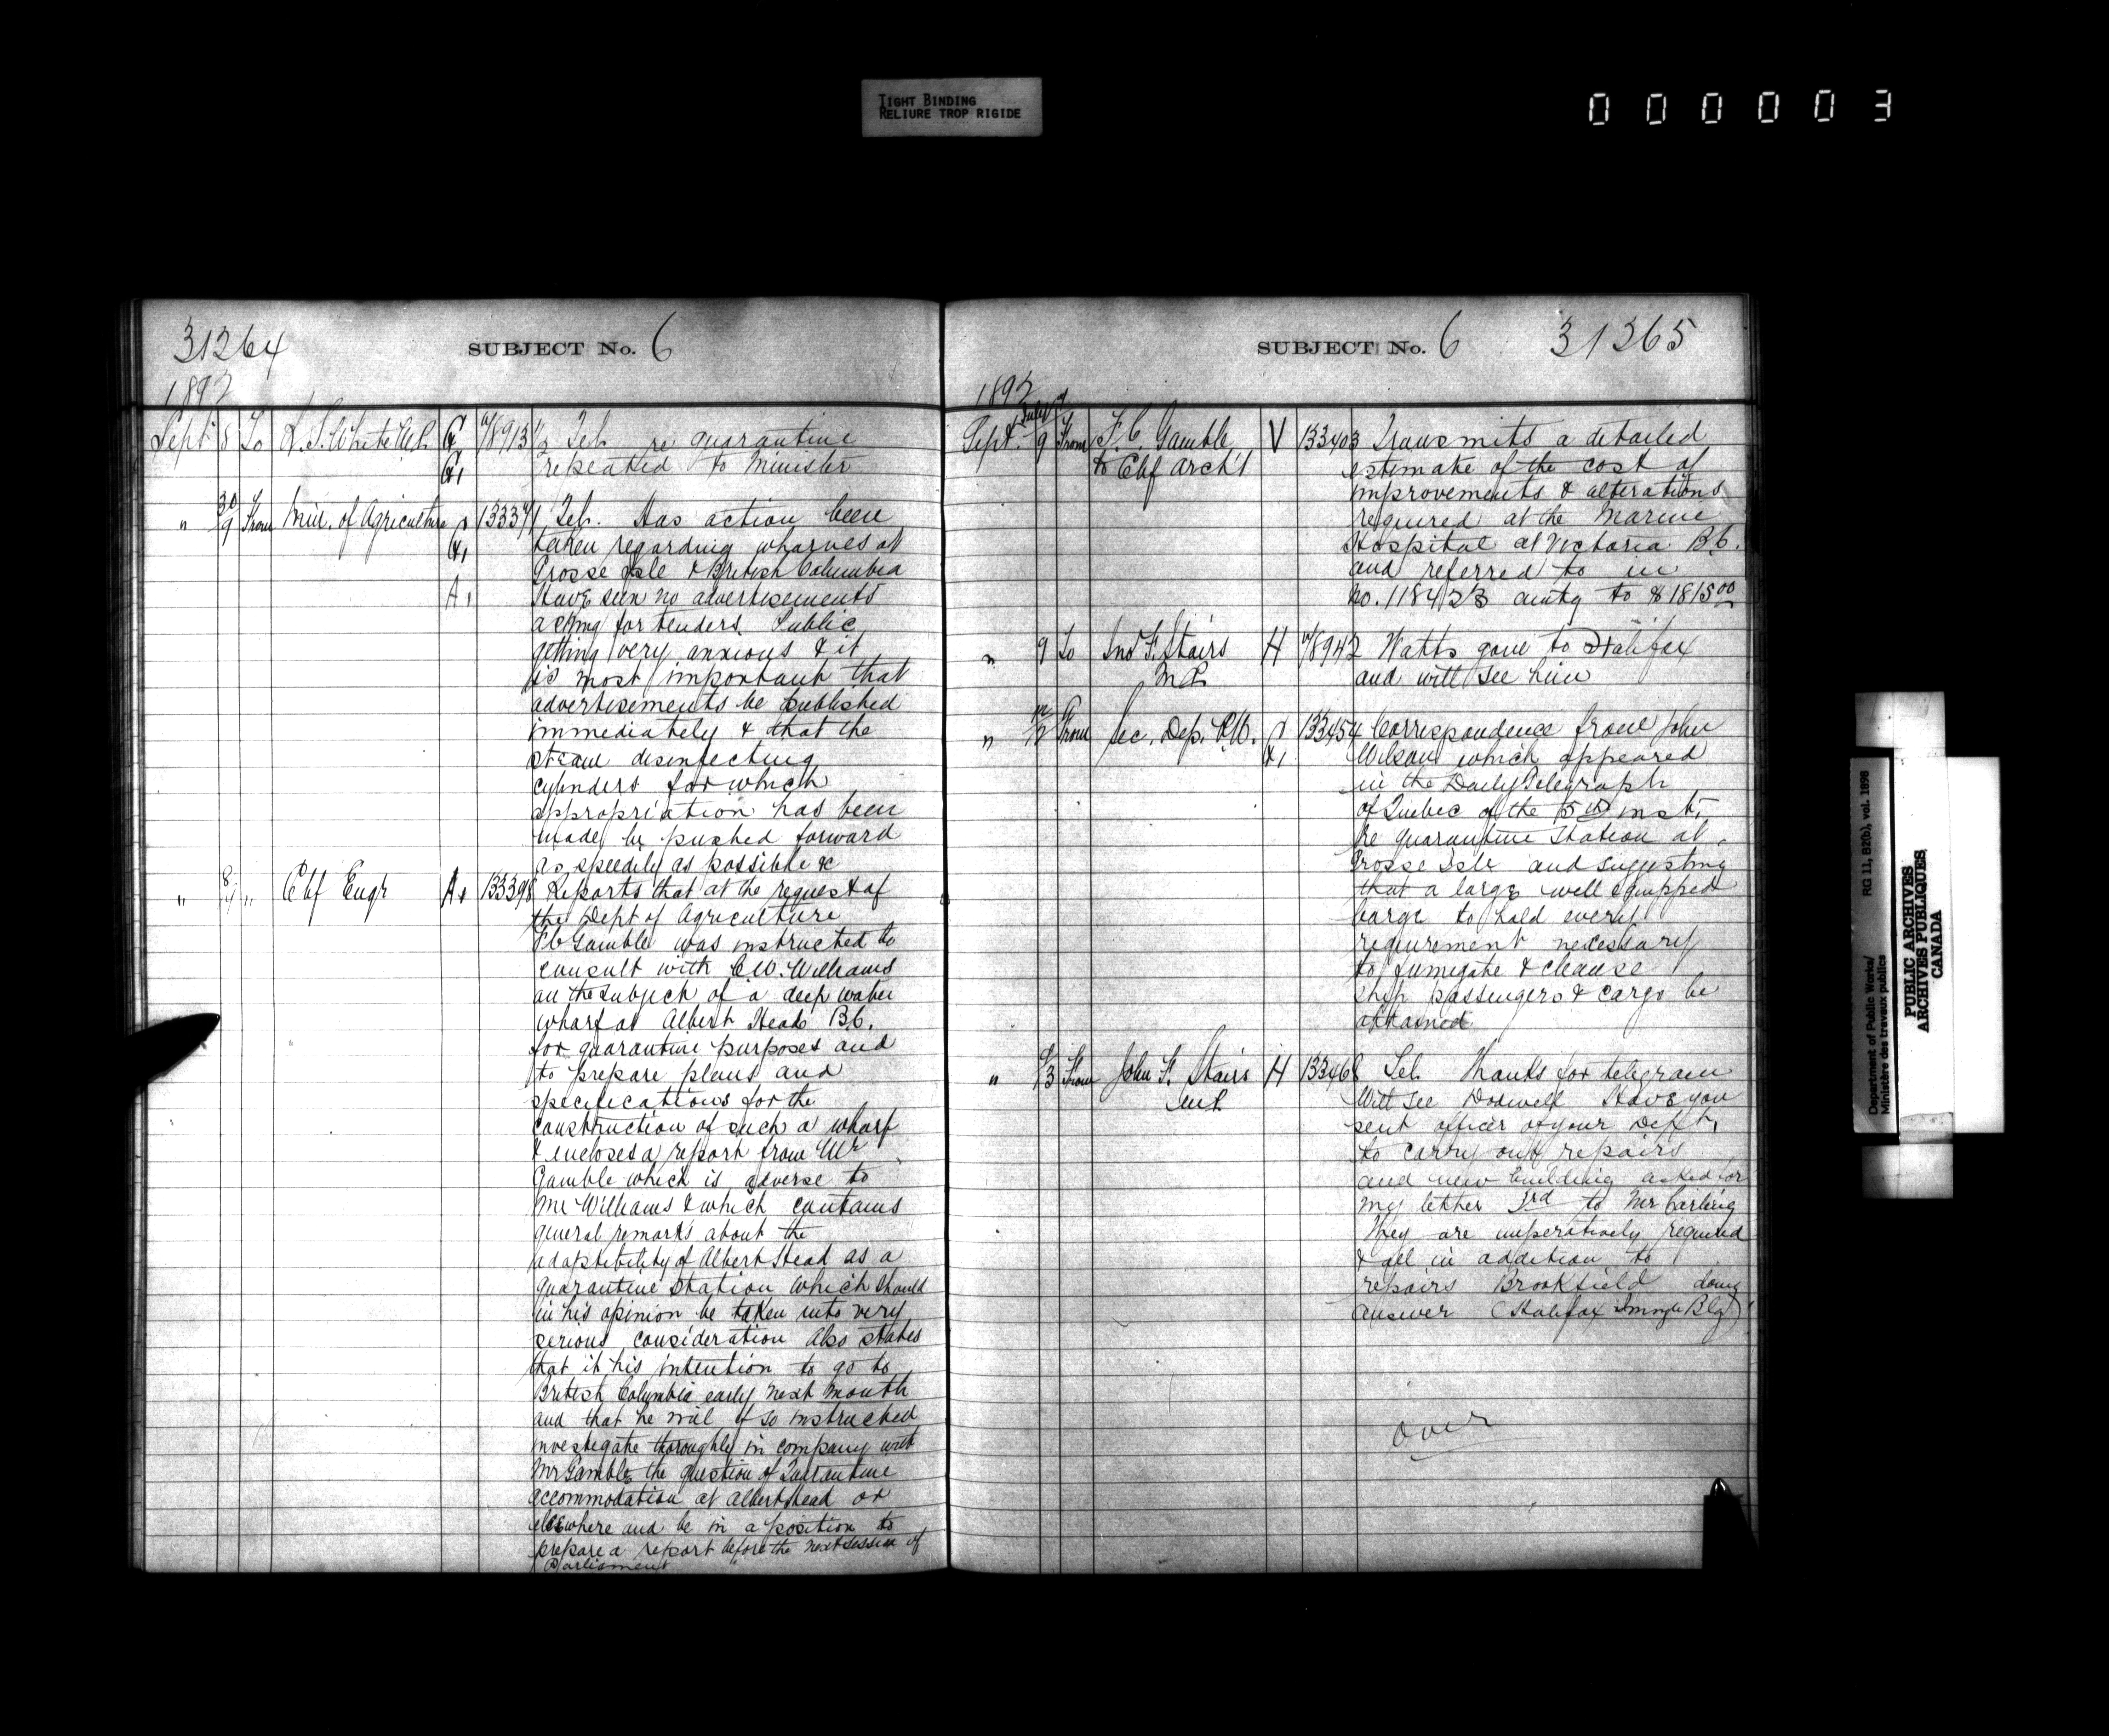 TIGHT BINDING
RELIURE TROP RIGIDE
000003
31264
SUBJECT No. 6
1892
Sept 8 To White G 8913 Tel. re quarantine
G, repeated to Minister
" 30/9 From Min. of Agriculture 13337 Tel. Has action been
G, taken regarding wharves at
A, Grosse Isle & British Columbia
Have seen no advertisements
asking for tenders. Public
getting very anxious & it
is most important that
advertisements be published
immediately & that the
steam disinfecting
cylinders for which
appropriation has been
made, be pushed forward
as speedily as possible &c
" " Chf Engr A, 13339 Reports that at the request of
the Dept of Agriculture
F C Gamble was instructed to
consult with C.W. Williams
on the subject of a deep water
wharf at Albert Head B.C.
for quarantine purposes and
to prepare plans and
specifications for the
construction of such a wharf
& encloses a report from Mr
Gamble which is adverse to
Mr Williams & which contains
general remarks about the
adaptibility of Albert Head as a
quarantine station which should
in his opinion be taken into very
serious consideration also states
that it his intention to go to
British Columbia early next month
and that he will if so instructed
investigate thoroughly in company with
Mr Gamble the question of Quarantine
accommodation at Albert Head or
elsewhere and be in a position to
prepare a report before the next session of
Parliament
SUBJECT No. 6 31265
1892
Sept. 9 From F.C. Gamble V 133403 Transmits a detailed
to Chf Arch't estimate of the cost of
improvements & alterations
required at the Marine
Hospital at Victoria B.C.
and referred to in
No. 118423 amtg to $1815.00
" 9 To Jno F. Stairs H 8942 Watts gone to Halifax
M.P. and will see him
" From Sec. Dep. P.W. 133454 Correspondence from John
Wilson which appeared
in the Daily Telegraph
of Quebec of the 5th inst.
re quarantine station at
Grosse Isle and suggesting
that a large well equipped
barge to hold every
requirement necessary
to fumigate & cleanse
ship passengers & cargo be
obtained
" From John F. Stairs H 13346 Tel. Thanks for telegram
M.P. Will see Dodwell Have you
sent officer of your Dept.
to carry out repairs
and new building asked for
my letter 3rd to Mr Carling
They are imperatively required
& all in addition to
repairs Brookfield doing
answer (Halifax Immgn Blg)
over
Department of Public Works/ RG 11, B2(b), vol. 1898
Ministère des travaux publics
PUBLIC ARCHIVES
ARCHIVES PUBLIQUES
CANADA